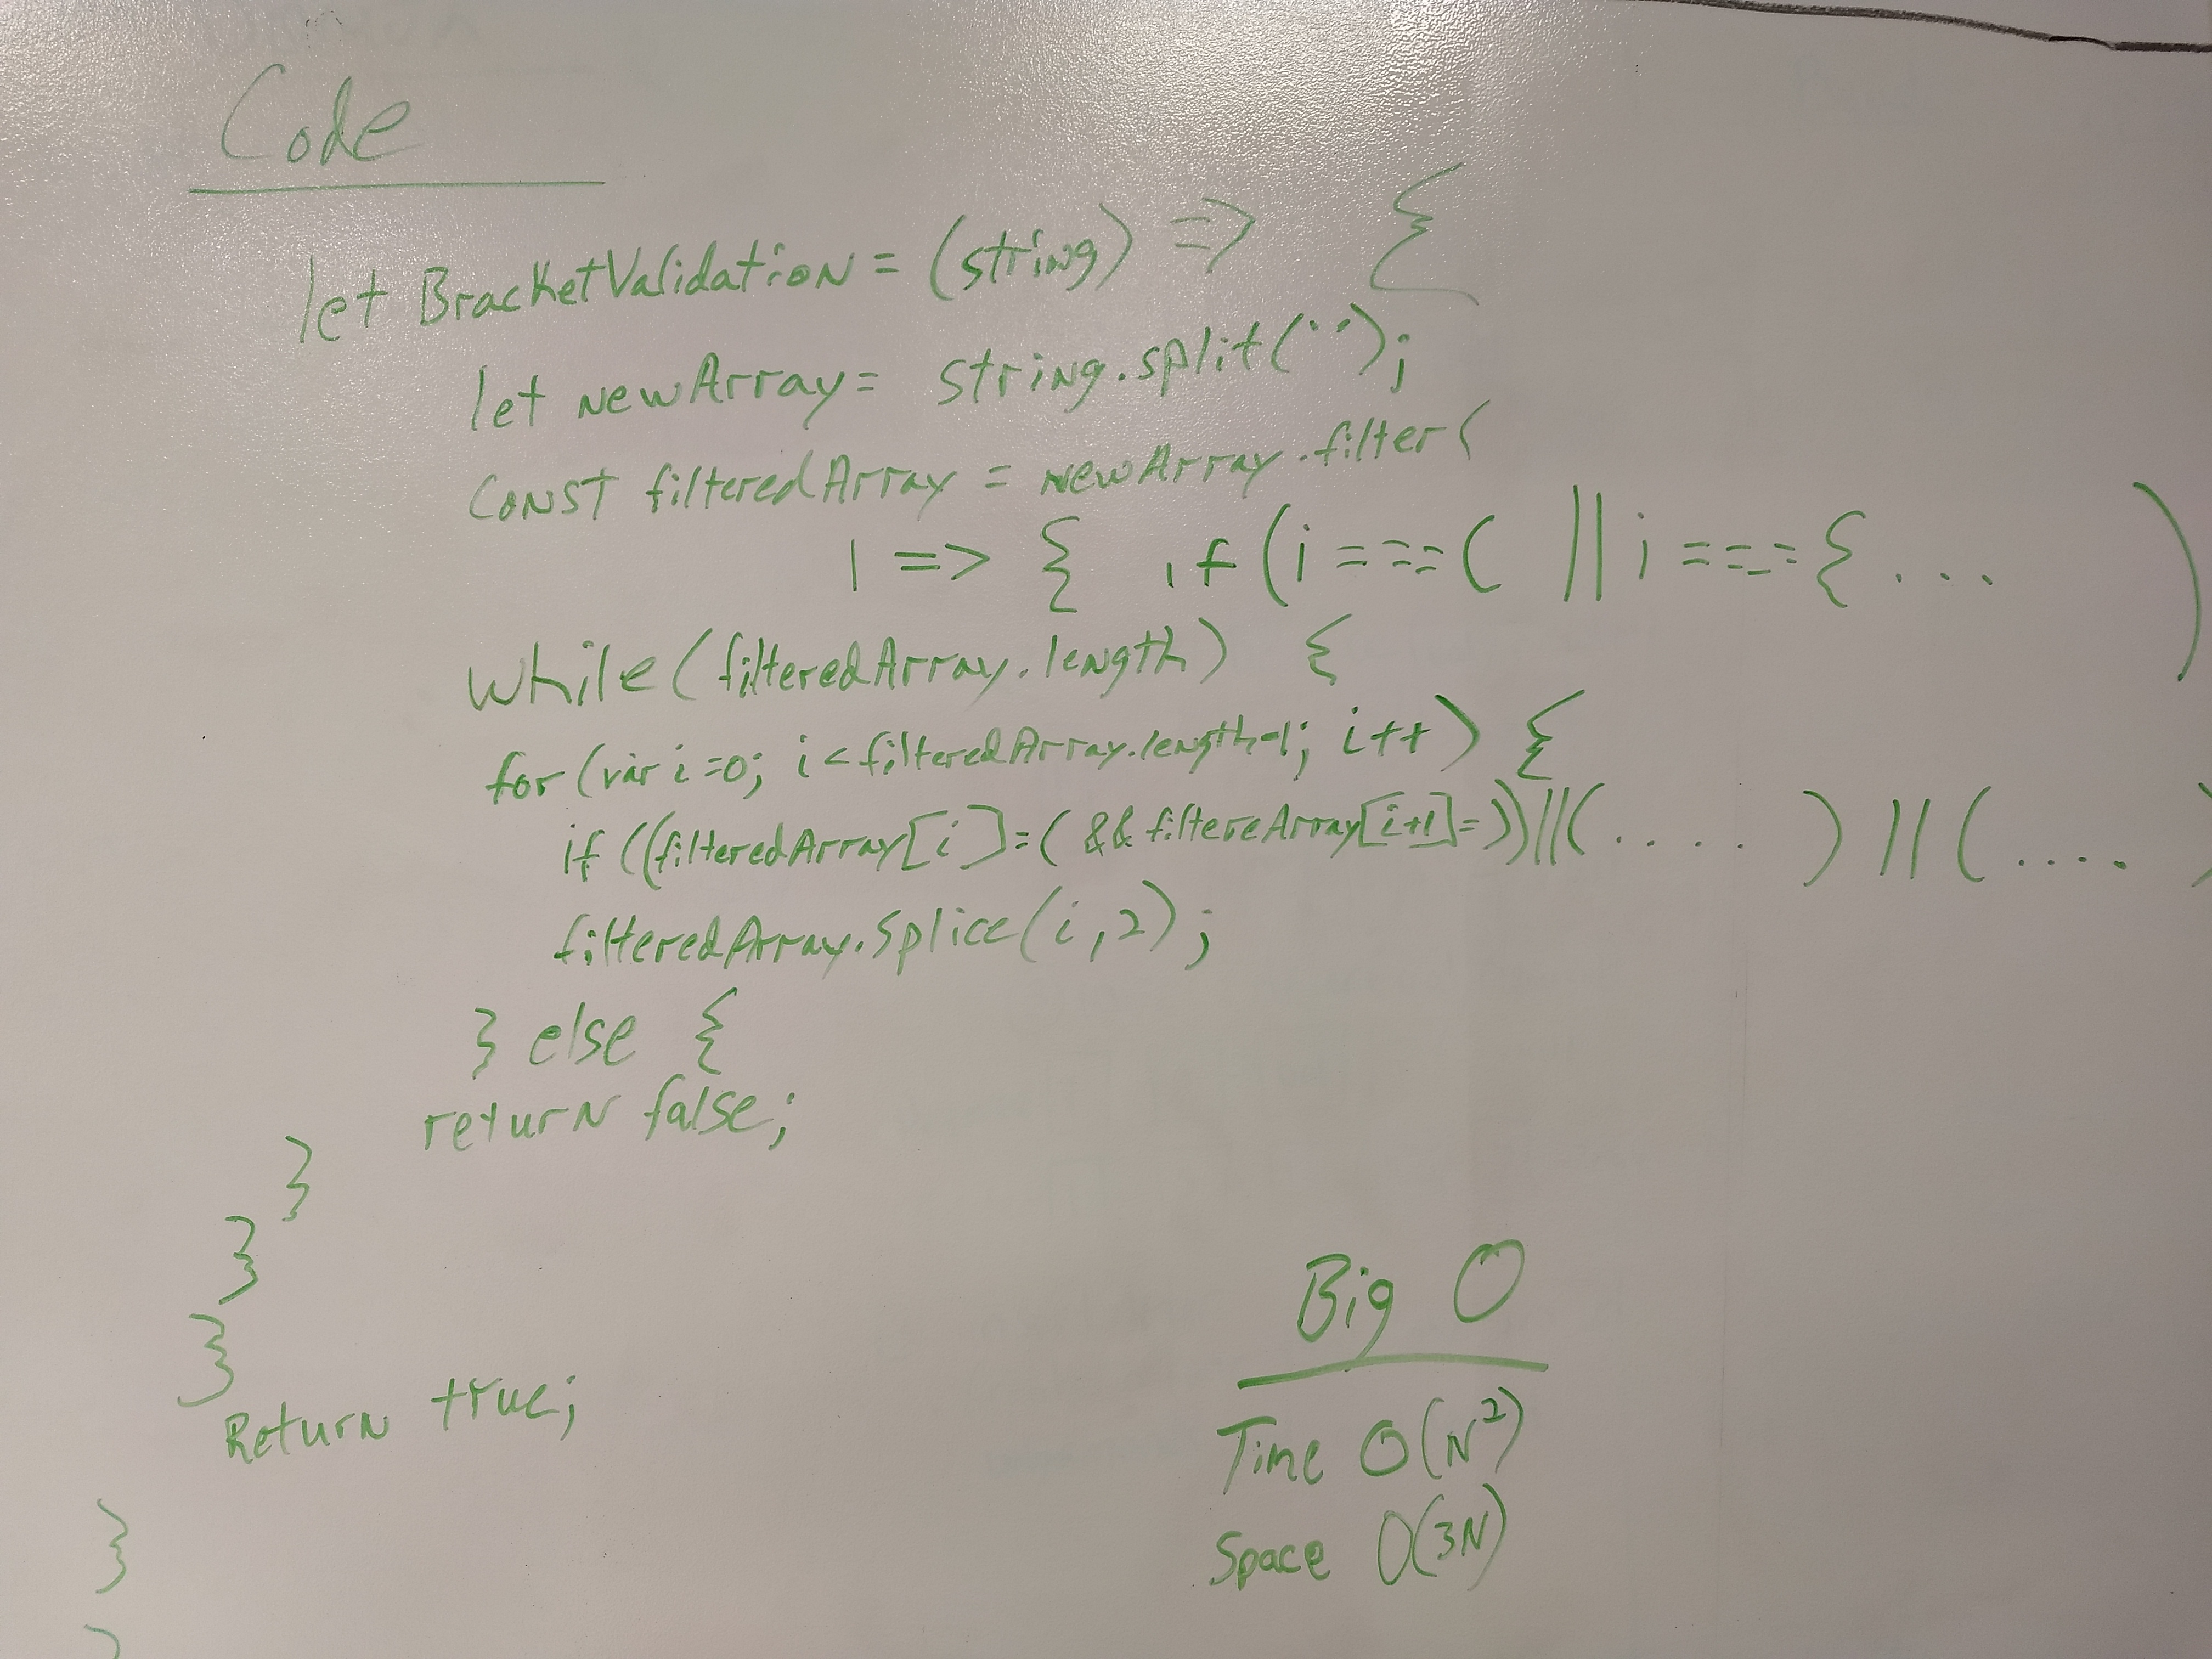 Code
let BracketValidation = (string) => {
let newArray = string.split('');
const filteredArray = newArray.filter(
i => { if (i === ( || i === { ... )
while (filteredArray.length) {
for (var i=0; i < filteredArray.length-1; i++) {
if ((filteredArray[i]=( && filtereArray[i+1]=))||(.....) || (....)
filteredArray.splice(i,2);
} else {
return false;
}
}
}
Return true;
}
Big O
Time O(N²)
Space O(3N)